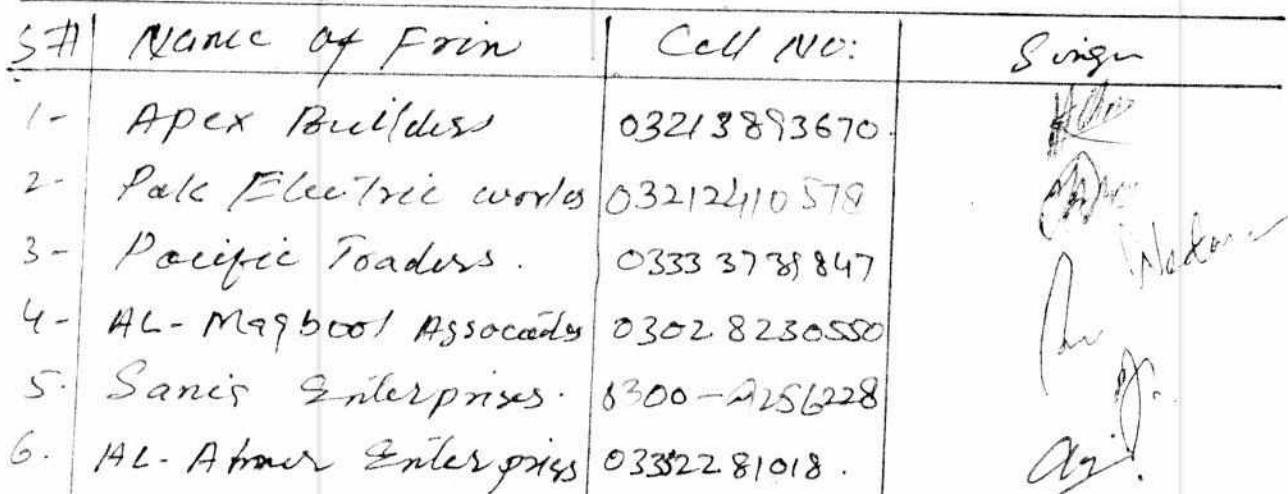 S# Name of Frim Cell No: Singn
1- Apex Builders 03213893670.
2- Pak Electric works 03212410578
3- Pacific Toaders. 03333739847
4- AL-Maqbool Assocaids 03028230550
5. Sanis Enterprises. 0300-2256228
6. AL- Enterpriss 03352281018.